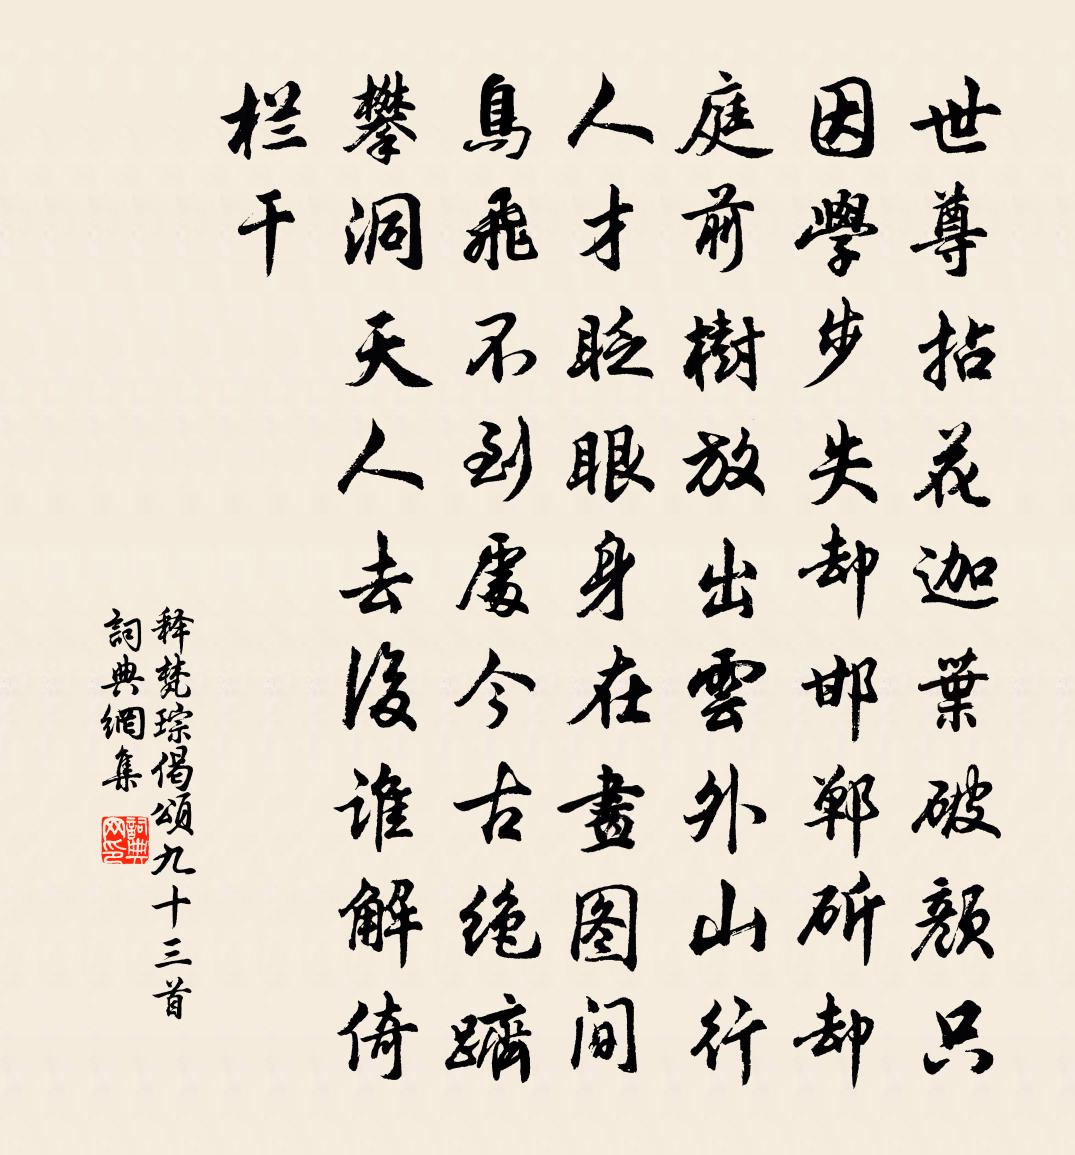 世尊拈花迦葉破顔只
因學步失却邯鄲斫却
庭前樹放出雲外山行
人才眨眼身在畫图间
鳥飛不到處今古绝躋
攀洞天人去後谁解倚
栏干
释梵琮偈頌九十三首
詞典網集
詞典网印